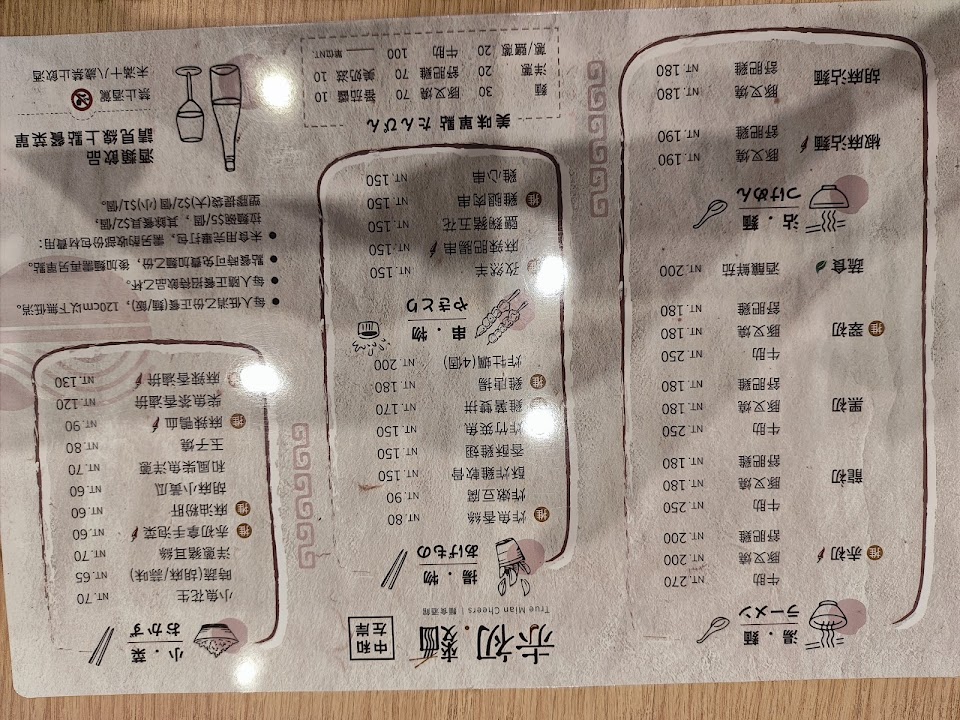 湯・麵
ラーメン
推 赤初 牛肋 NT.270
豚叉燒 NT.200
舒肥雞 NT.200
龍初 牛肋 NT.250
豚叉燒 NT.180
舒肥雞 NT.180
黑初 牛肋 NT.250
豚叉燒 NT.180
舒肥雞 NT.180
推 翠初 牛肋 NT.250
豚叉燒 NT.180
舒肥雞 NT.180
蔬食 酒釀鮮茄 NT.200
沾・麵
つけめん
椒麻沾麵 豚叉燒 NT.190
舒肥雞 NT.190
胡麻沾麵 豚叉燒 NT.180
舒肥雞 NT.180
赤初・麵
中和
左岸
True Mian Cheers | 麵食酒館
揚・物
あげもの
推 炸魚香絲 NT.80
炸嫩豆腐 NT.90
酥炸雞軟骨 NT.150
香酥雞翅 NT.150
炸竹筴魚 NT.150
推 雞薯雙拼 NT.170
推 雞唐揚 NT.180
炸牡蠣(4個) NT.200
串・物
やきとり
推 孜然羊 NT.150
麻辣肥腸串 NT.150
鹽麴豬五花 NT.150
推 雞腿肉串 NT.150
雞心串 NT.150
美味單點 たんぴん
麵 30 豚叉燒 70 番茄醬 10
洋蔥 20 舒肥雞 70 美奶滋 10
蔥/鹽蔥 20 牛肋 100 單位NT.
小・菜
おかず
小魚花生 NT.70
時蔬(胡麻/蒜味) NT.65
洋蔥豬耳絲 NT.70
推 赤初拿手泡菜 NT.60
推 麻油粉肝 NT.60
胡麻小黃瓜 NT.60
和風柴魚洋蔥 NT.70
玉子燒 NT.80
推 麻辣鴨血 NT.90
柴魚茶香油拚 NT.120
推 麻辣香油拚 NT.130
每人低消乙份正餐(麵/飯)，120cm以下無低消。
每人隨正餐招待飲品乙杯。
點餐時可免費加麵乙份，後加麵需再另單點。
未食用完畢打包，需另酌收部份包材費用：
拉麵碗$5/個，其餘餐具$2/個，
塑膠提袋(大)$2/個(小)$1/個。
酒類飲品
請見線上點餐菜單
禁止酒駕
未滿十八歲禁止飲酒